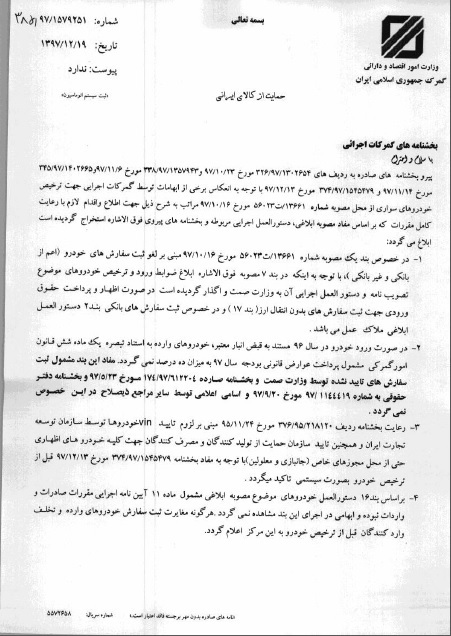 بسمه تعالی
شماره: ۹۷/۱۵۷۹۲۵۱
تاریخ: ۱۳۹۷/۱۲/۱۹
پیوست: ندارد
«ثبت سیستم اتوماسیون»
وزارت امور اقتصاد و دارائی
گمرک جمهوری اسلامی ایران
حمایت از کالای ایرانی
بخشنامه های گمرکات اجرائی
با سلام و احترام
پیرو بخشنامه های صادره به ردیف های ۳۲۶/۹۷/۱۳۰۲۶۵۴ مورخ ۹۷/۱۰/۲۳ و ۳۳۸/۹۷/۱۳۵۷۹۴۳ مورخ ۹۷/۱۱/۶ و ۳۴۵/۹۷/۱۴۰۲۶۶۵
مورخ ۹۷/۱۱/۱۴ و ۳۷۴/۹۷/۱۵۴۵۴۷۹ مورخ ۹۷/۱۲/۱۳ با توجه به انعکاس برخی از ابهامات توسط گمرکات اجرایی جهت ترخیص
خودروهای سواری از محل مصوبه شماره ۱۳۶۶۱/ت۵۶۰۲۳ مورخ ۹۷/۱۰/۱۶ مراتب به شرح ذیل جهت اطلاع واقدام لازم با رعایت
کامل مقررات که بر اساس مفاد مصوبه ابلاغی، دستورالعمل اجرایی مربوطه و بخشنامه های پیروی فوق الاشاره استخراج گردیده است
ابلاغ می گردد:
۱- در خصوص بند یک مصوبه شماره ۱۳۶۶۱/ت۵۶۰۲۳ مورخ ۹۷/۱۰/۱۶ مبنی بر لغو ثبت سفارش های خودرو (اعم از
بانکی و غیر بانکی)، با توجه به اینکه در بند ۷ مصوبه فوق الاشاره ابلاغ ضوابط ورود و ترخیص خودروهای موضوع
تصویب نامه و دستور العمل اجرایی آن به وزارت صمت واگذار گردیده است در صورت اظهار و پرداخت حقوق
ورودی جهت ثبت سفارش های بدون انتقال ارز( بند ۱۷ ) و در خصوص ثبت سفارش های بانکی بند۲ دستور العمل
ابلاغی ملاک عمل می باشد.
۲- در صورت ورود خودرو در سال ۹۶ مستند به قبض انبار معتبر، خودروهای وارده به استناد تبصره یک ماده شش قانون
امورگمرکی مشمول پرداخت عوارض قانونی بودجه سال ۹۷ به میزان ده درصد نمی گردد. مفاد این بند مشمول ثبت
سفارش های تایید نشده توسط وزارت صمت و بخشنامه صادره ۱۷۴/۹۷/۶۱۲۲۰۴ مورخ ۹۷/۵/۲۳ و بخشنامه دفتر
حقوقی به شماره ۹۷/۱۱۴۴۴۱۹ مورخ ۹۷/۹/۲۰ و اسامی اعلامی توسط سایر مراجع ذیصلاح در این خصوص
نمی گردد.
۳- رعایت بخشنامه ردیف ۳۷۶/۹۵/۲۱۸۱۲۰ مورخ ۹۵/۱۱/۲۴ مبنی بر لزوم تایید vin خودروها توسط سازمان توسعه
تجارت ایران و همچنین تایید سازمان حمایت از تولید کنندگان و مصرف کنندگان جهت کلیه خودرو های اظهاری
حتی از محل مجوزهای خاص (جانبازی و معلولین) با توجه به مفاد بخشنامه ۳۷۴/۹۷/۱۵۴۵۴۷۹ مورخ ۹۷/۱۲/۱۳ قبل از
ترخیص خودرو بصورت سیستمی تاکید میگردد.
۴- براساس بند۱۶ دستورالعمل خودروهای موضوع مصوبه ابلاغی مشمول ماده ۱۱ آیین نامه اجرایی مقررات صادرات و
واردات نبوده و ابهامی در اجرای این بند مشاهده نمی گردد .هرگونه مغایرت ثبت سفارش خودروهای وارده و تخلف
وارد کنندگان قبل از ترخیص خودرو به این مرکز اعلام گردد.
«نامه های صادره بدون مهر برجسته فاقد اعتبار است.»
شماره سریال: ۵۵۷۲۶۵۸